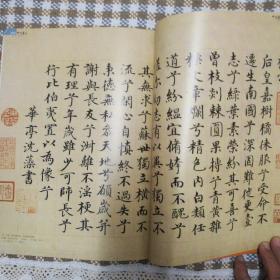 后皇嘉樹橘徠服兮受命不
遷生南國兮深固難徙更壹
志兮綠葉素榮紛其可喜兮
曾枝剡棘圓果摶兮青黃雜
糅文章爛兮精色內白類任
道兮紛緼宜脩姱而不醜兮
嗟爾幼志有以異兮獨立不
其無求兮蘇世獨立橫而不
流兮閉心自慎終不過失兮
秉德無私參天地兮願歲并
謝與長友兮淑離不淫梗其
有理兮年歲雖少可師長兮
行比伯夷置以為像兮
華亭沈藻書